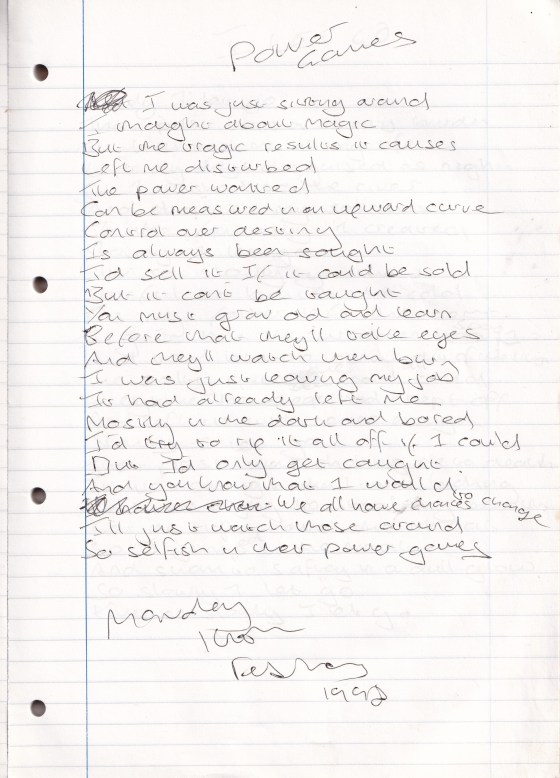 Power
Games
I was just sitting around
I thought about magic
But the tragic results it causes
Left me disturbed
The power wanted
Can be measured in an upward curve
Control over destiny
Is always been sought
I'd sell it If it could be sold
But it cant be taught
You must grow old and learn
Before that they'll take eyes
And they'll watch them burn
I was just leaving my job
It had already left me
Mostly in the dark and bored
I'd try to rip it all off if I could
But I'd only get caught
And you know that I would
We all have chances to change
I'll just watch those around
So selfish in their power games
Monday
1998